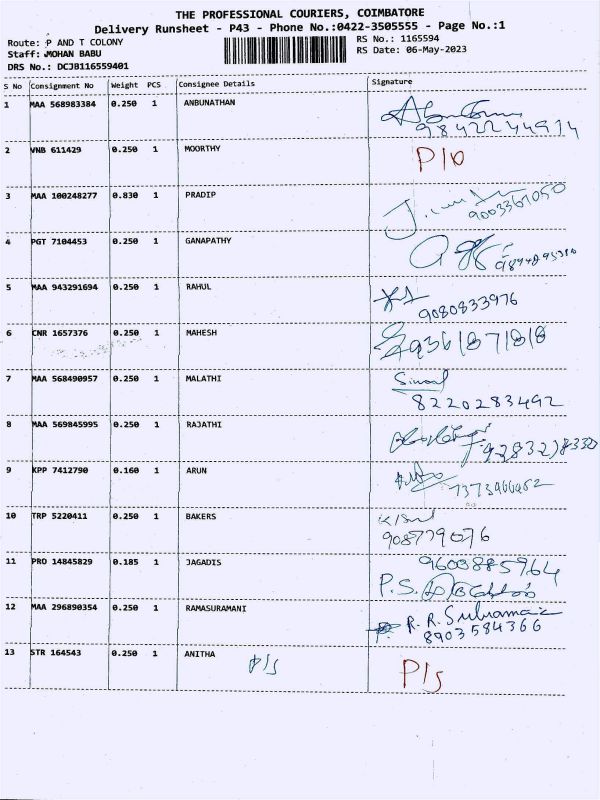 THE PROFESSIONAL COURIERS, COIMBATORE
Delivery Runsheet - P43 - Phone No.:0422-3505555 - Page No.:1
Route: P AND T COLONY
RS No.: 1165594
Staff: MOHAN BABU
RS Date: 06-May-2023
DRS No.: DCJB116559401
S No Consignment No Weight PCS Consignee Details Signature
1 MAA 568983384 0.250 1 ANBUNATHAN
9842244914
2 VNB 611429 0.250 1 MOORTHY
3 MAA 100248277 0.830 1 PRADIP
9003361050
4 PGT 7104453 0.250 1 GANAPATHY
5 MAA 943291694 0.250 1 RAHUL
9080833976
6 CNR 1657376 0.250 1 MAHESH
9361871818
7 MAA 568490957 0.250 1 MALATHI
8220283492
8 MAA 569845995 0.250 1 RAJATHI
9 KPP 7412790 0.160 1 ARUN
10 TRP 5220411 0.250 1 BAKERS
11 PRO 14845829 0.185 1 JAGADIS
9600885964
P.S.
12 MAA 296890354 0.250 1 RAMASURAMANI
R. R.
8903584366
13 STR 164543 0.250 1 ANITHA P/s P/s